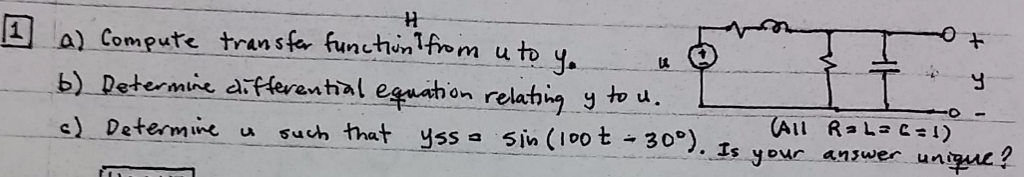 1 a) Compute transfer function H from u to y.
b) Determine differential equation relating y to u.
c) Determine u such that yss = sin(100t - 30°). Is your answer unique?
u
+
y
-
(All R=L=C=1)